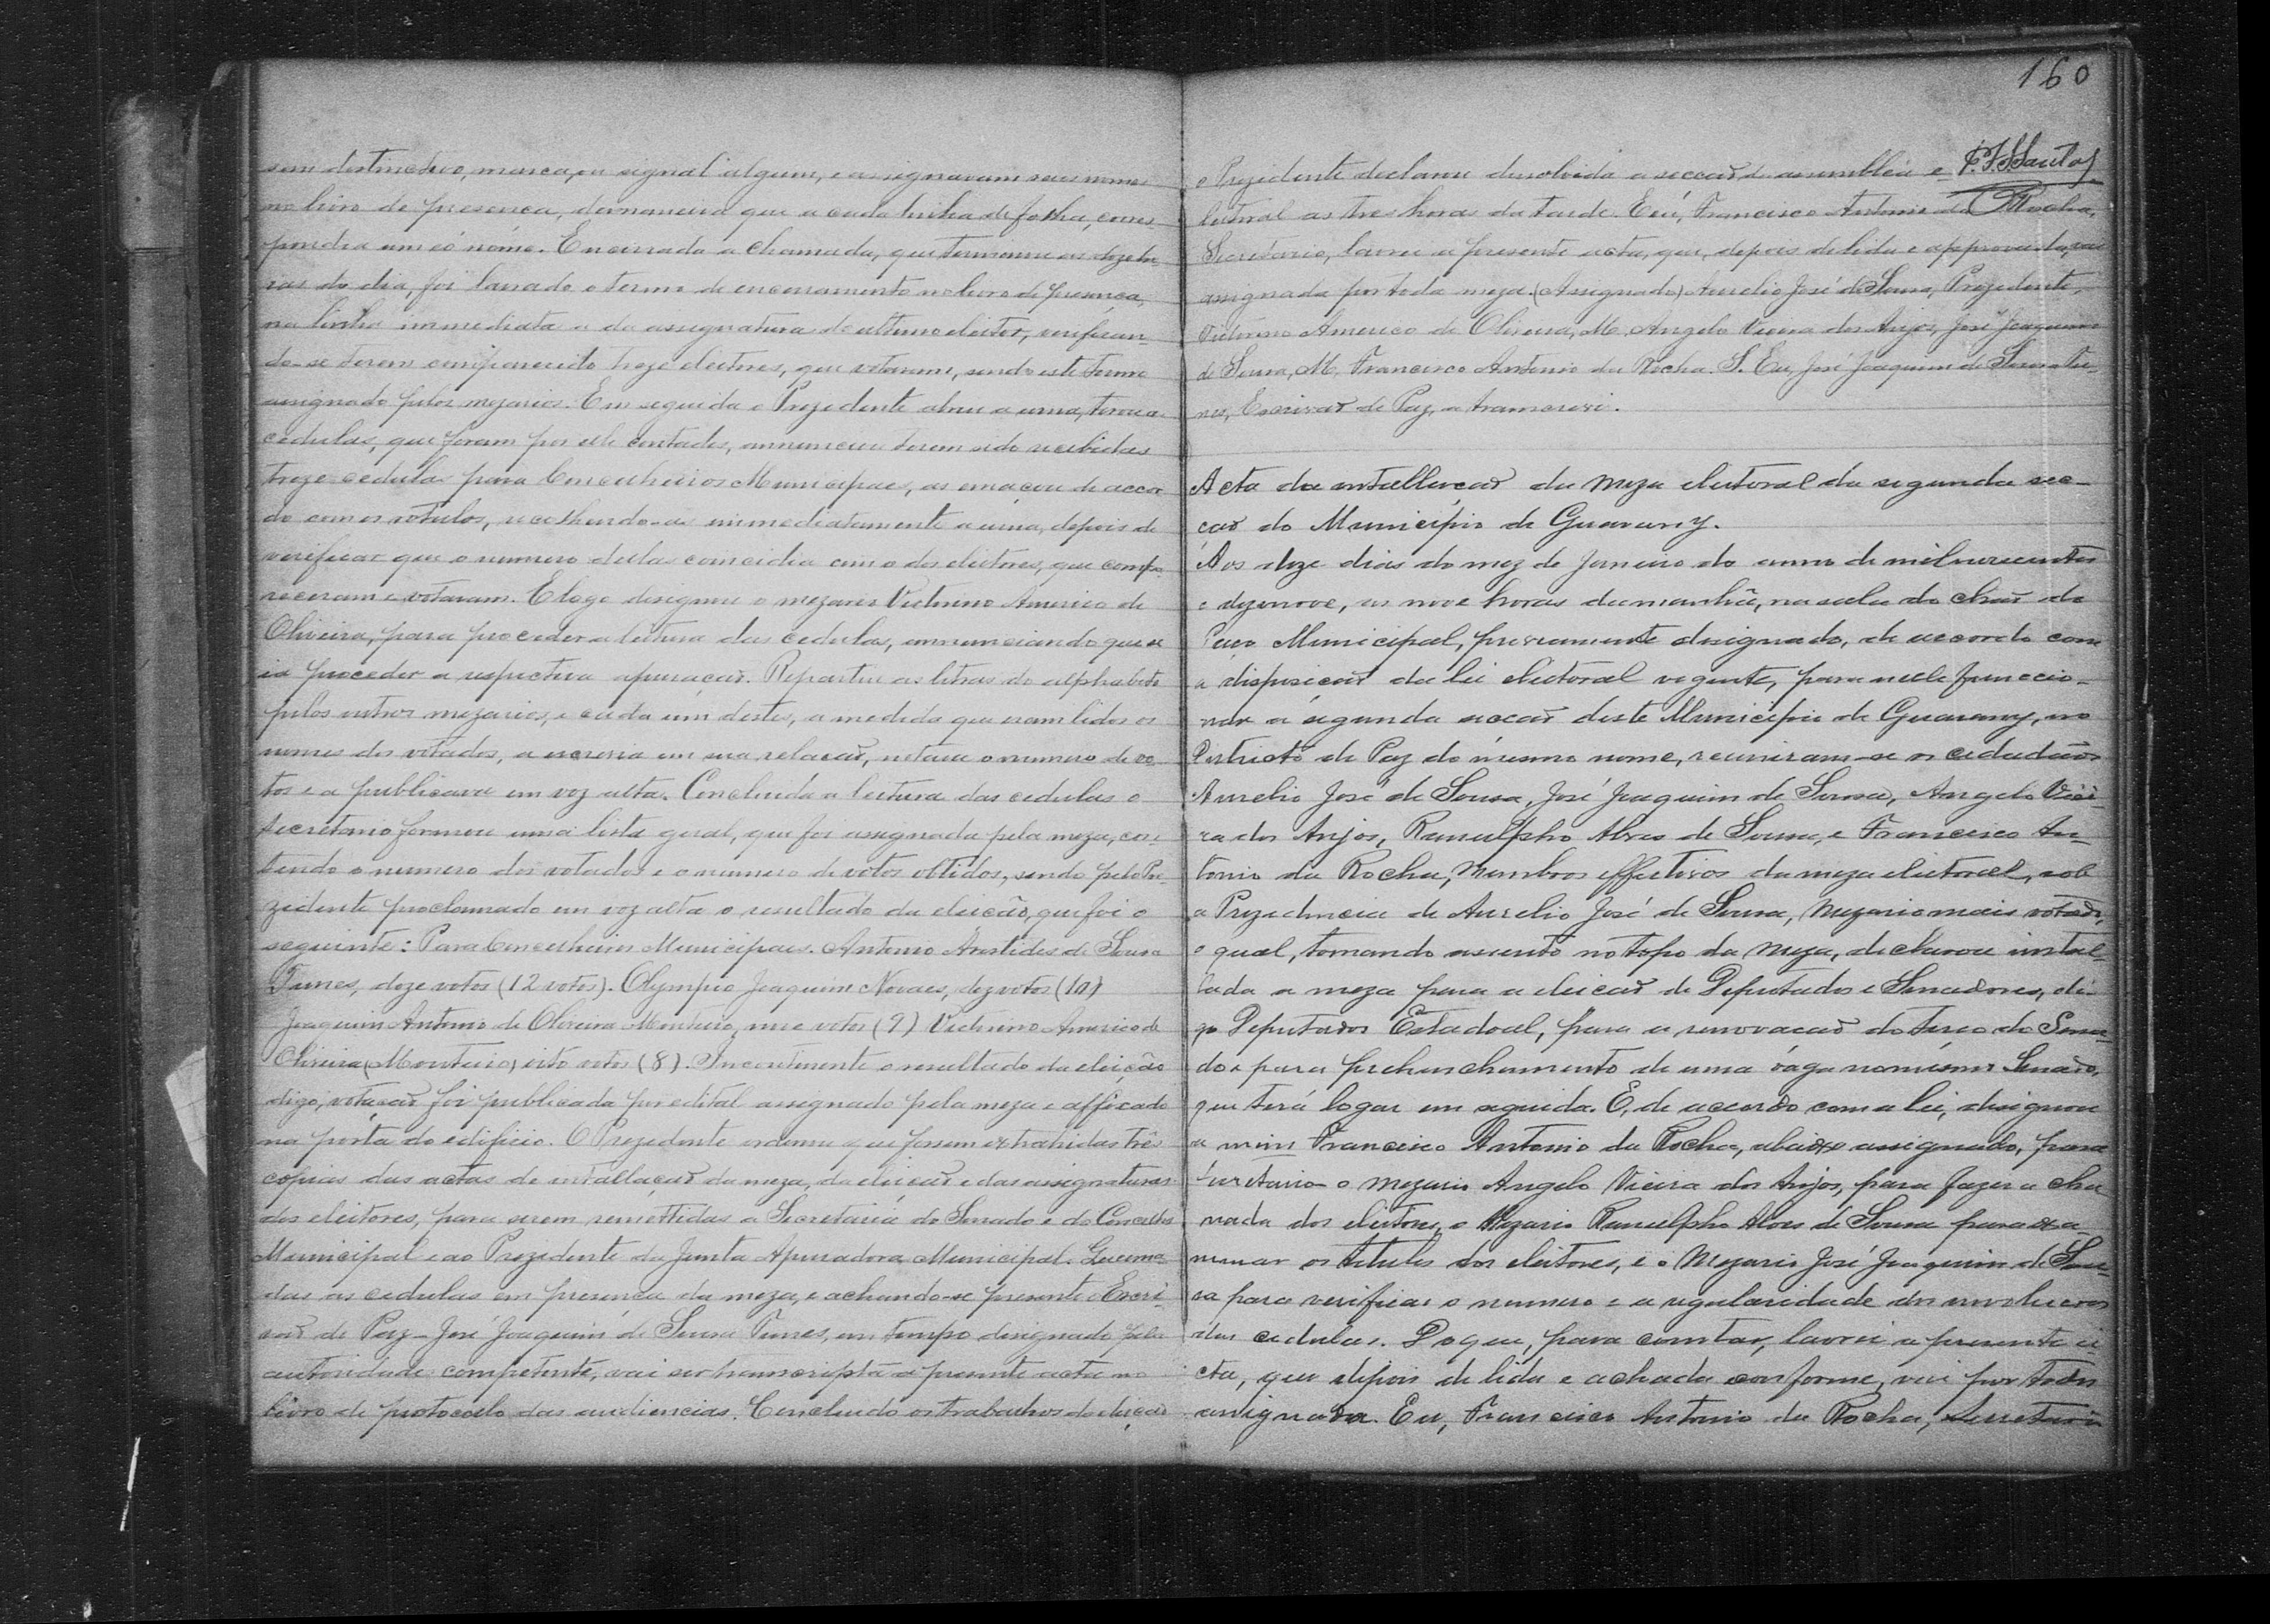 sem destinctivo, marca, ou signal algum, e assignavam seus nomes
no livro de presença, demaneira que a cada linha de folha, corres
pondia um só nome. Encerrada a chamada, que terminou as doze ho-
ras do dia, foi lavrado o termo de encerramento no livro de presença,
na linha immediata a da assignatura do ultimo eleitor, verifican-
do-se terem comparecido treze eleitores, que votaram, sendo este termo
assignado pelos mezarios. Em seguida o Prezidente abriu a urna, tirou as
cedulas, que foram por elle contadas, annunciou terem sido recebidas
treze cedulas para Concelheiros Municipaes, as emaçou de accor
do com os rotulos, recolhendo-as immediatamente a urna, depois de
verificar que o numero dellas coincidia com o dos eleitores, que compa-
receram e votaram. E logo designou o mezario Victorino Americo de
Oliveira, para proceder a leitura das cedulas, annunciando que se
ia proceder a respectiva apuração. Repartiu as letras do alphabeto
pelos outros mezarios, e cada um destes, a medida que eram lidos os
nomes dos votados, a escrevia em sua relação, notava o numero de vo-
tos e a publicava em voz alta. Concluida a leitura das cedulas o
secretario formou uma lista geral, que foi assignada pela meza, con-
tendo o numero dos votados e o numero de votos obtidos, sendo pelo Pre-
zidente proclamado em voz alta o resultado da eleicão, que foi o
seguinte: Para Concelheiros Municipaes. Antonio Aristides de Sousa
Tunes, doze votos (12 votos). Olympio Joaquim Novaes, dez votos (10)
Joaquim Antonio de Oliveira Monteiro, nove votos (9) Victorino Americo de
Oliveira (Monteiro) oito votos (8). Incontinente o resultado da eleição
digo, votação foi publicada por edital assignado pela meza e afficado
na porta do edificio. O Prezidente ordenou que fossem extrahidas três
copias das actas de intallação da meza, da eleicão e das assignaturas
dos eleitores, para serem remettidas a Secretaria do Senado e do Concelho
Municipal e ao Prezidente da Junta Apuradora Municipal. Queima-
das as cedulas em presença da meza, e achando-se presente o Escri-
vão de Paz - José Joaquim de Sousa Tunes, em tempo designado pela
autoridade competente, vai ser transcripta a presente acta no
livro de protocolo das audiencias. Concluido os trabalhos da eleição
160
o Prezidente declarou dissolvida a seccão da assembléa e
P. F. S. Santos
leitoral as tres horas da tarde. E eu, Francisco Antonio da Rocha,
Secretario, lavrei a presente acta, que, depois de lida e approvada, vai
assignada por toda meza. (Assignado) Aurelio José de Sousa, Prezidente,
Victorino Americo de Oliveira, M. Angelo Vieira dos Anjos, José Joaquim
de Sousa, M. Francisco Antonio da Rocha. S. Eu, José Joaquim de Sousa Tu-
nes, Escrivão de Paz, a transcrevi.
Acta da intallacão da meza eleitoral da segunda sec-
cão do Municipio de Guarany.
Aos doze dias do mez de Janeiro do anno de mil novecentos
e dezenove, as nove horas da manhã, na sala do chão do
Paço Municipal, previamente designado, de accordo com
a disposicão da lei eleitoral vigente, para nelle funccio-
nar a segunda seccão deste Municipio de Guarany, no
Districto de Paz do mesmo nome, reuniram-se os cidadãos
Aurelio José de Sousa, José Joaquim de Sousa, Angelo Viei-
ra dos Anjos, Ranulpho Alves de Sousa, e Francisco An-
tonio da Rocha, Membros effectivos da meza eleitoral, sob
a Prezidencia de Aurelio José de Sousa, Mezario mais votado,
o qual, tomando assento no topo da Meza, declarou instal-
lada a meza para a eleicão de Deputados e Senadores, di-
go Deputados Estadoal, para a renovacão do terco do Sena-
do e para prehenchemento de uma vaga no mesmo Senado,
que terá logar em seguida. E, de accordo com a lei, designou
a mim Francisco Antonio da Rocha, abaixo assignado, para
Secretario o Mezario Angelo Vieira dos Anjos, para fazer a cha
mada dos eleitores, o Mezario Ranulpho Alves de Sousa para exa-
minar os titulos dos eleitores, e o Mezario José Joaquim de Sou-
sa para verificar o numero e a regularidade dos involucros
das cedulas. Do que, para constar, lavrei a presente a-
cta, que depois de lida e achada conforme, vai por todos
assignada. Eu, Francisco Antonio da Rocha, Secretario